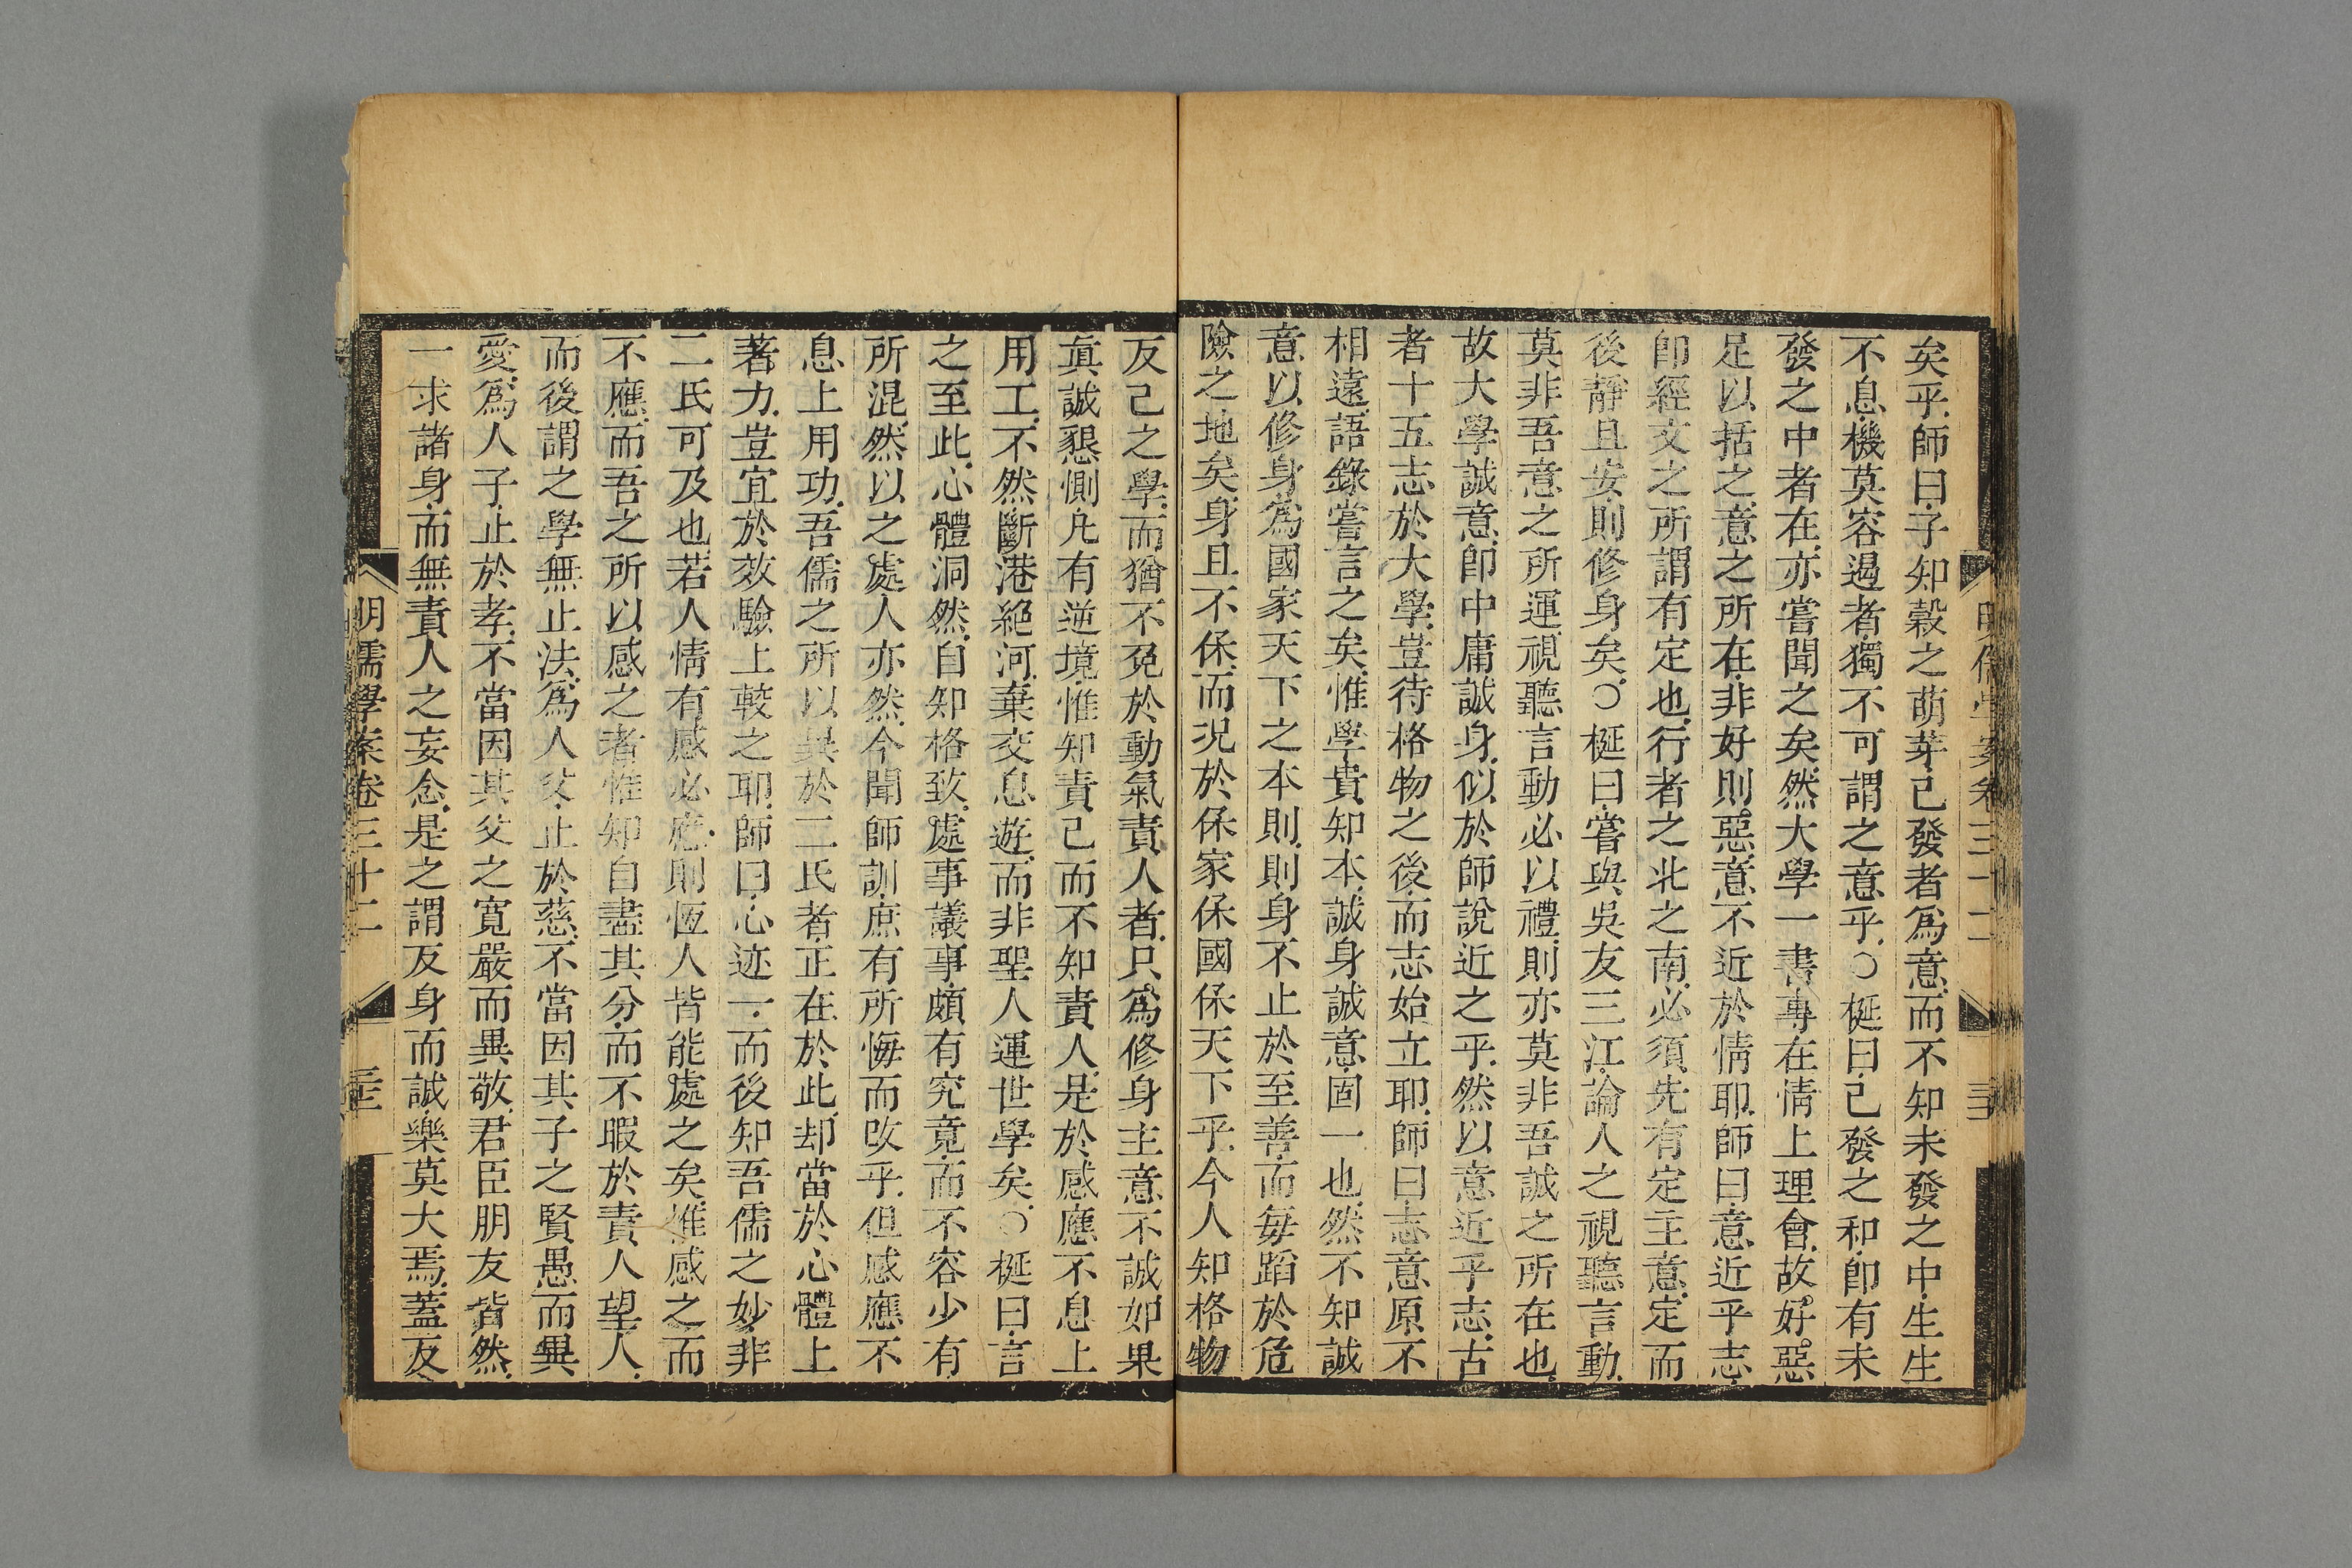 矣乎師曰子知穀之萌芽已發者爲意而不知未發之中生生
不息機莫容遏者獨不可謂之意乎○梴曰已發之和卽有未
發之中者在亦嘗聞之矣然大學一書專在情上理會故好惡
足以括之意之所在非好則惡意不近於情耶師曰意近乎志
卽經文之所謂有定也行者之北之南必須先有定主意定而
後靜且安則修身矣○梴曰嘗與吳友三江論人之視聽言動
莫非吾意之所運視聽言動必以禮則亦莫非吾誠之所在也
故大學誠意卽中庸誠身似於師說近之乎然以意近乎志古
者十五志於大學豈待格物之後而志始立耶師曰志意原不
相遠語錄嘗言之矣惟學貴知本誠身誠意固一也然不知誠
意以修身爲國家天下之本則則身不止於至善而每蹈於危
險之地矣身且不保而況於保家保國保天下乎今人知格物
反己之學而猶不免於動氣責人者只爲修身主意不誠如果
眞誠懇惻凡有逆境惟知責己而不知責人是於感應不息上
用工不然斷港絕河棄交息遊而非聖人運世學矣○梴曰言
之至此心體洞然自知格致處事議事頗有究竟而不容少有
所混然以之處人亦然今聞師訓庶有所悔而改乎但感應不
息上用功吾儒之所以異於二氏者正在於此却當於心體上
著力豈宜於效驗上較之耶師曰心迹一而後知吾儒之妙非
二氏可及也若人情有感必應則恆人皆能處之矣惟感之而
不應而吾之所以感之者惟知自盡其分而不暇於責人望人
而後謂之學無止法爲人父止於慈不當因其子之賢愚而異
愛爲人子止於孝不當因其父之寬嚴而異敬君臣朋友皆然
一求諸身而無責人之妄念是之謂反身而誠樂莫大焉蓋反
明儒學案卷三十二